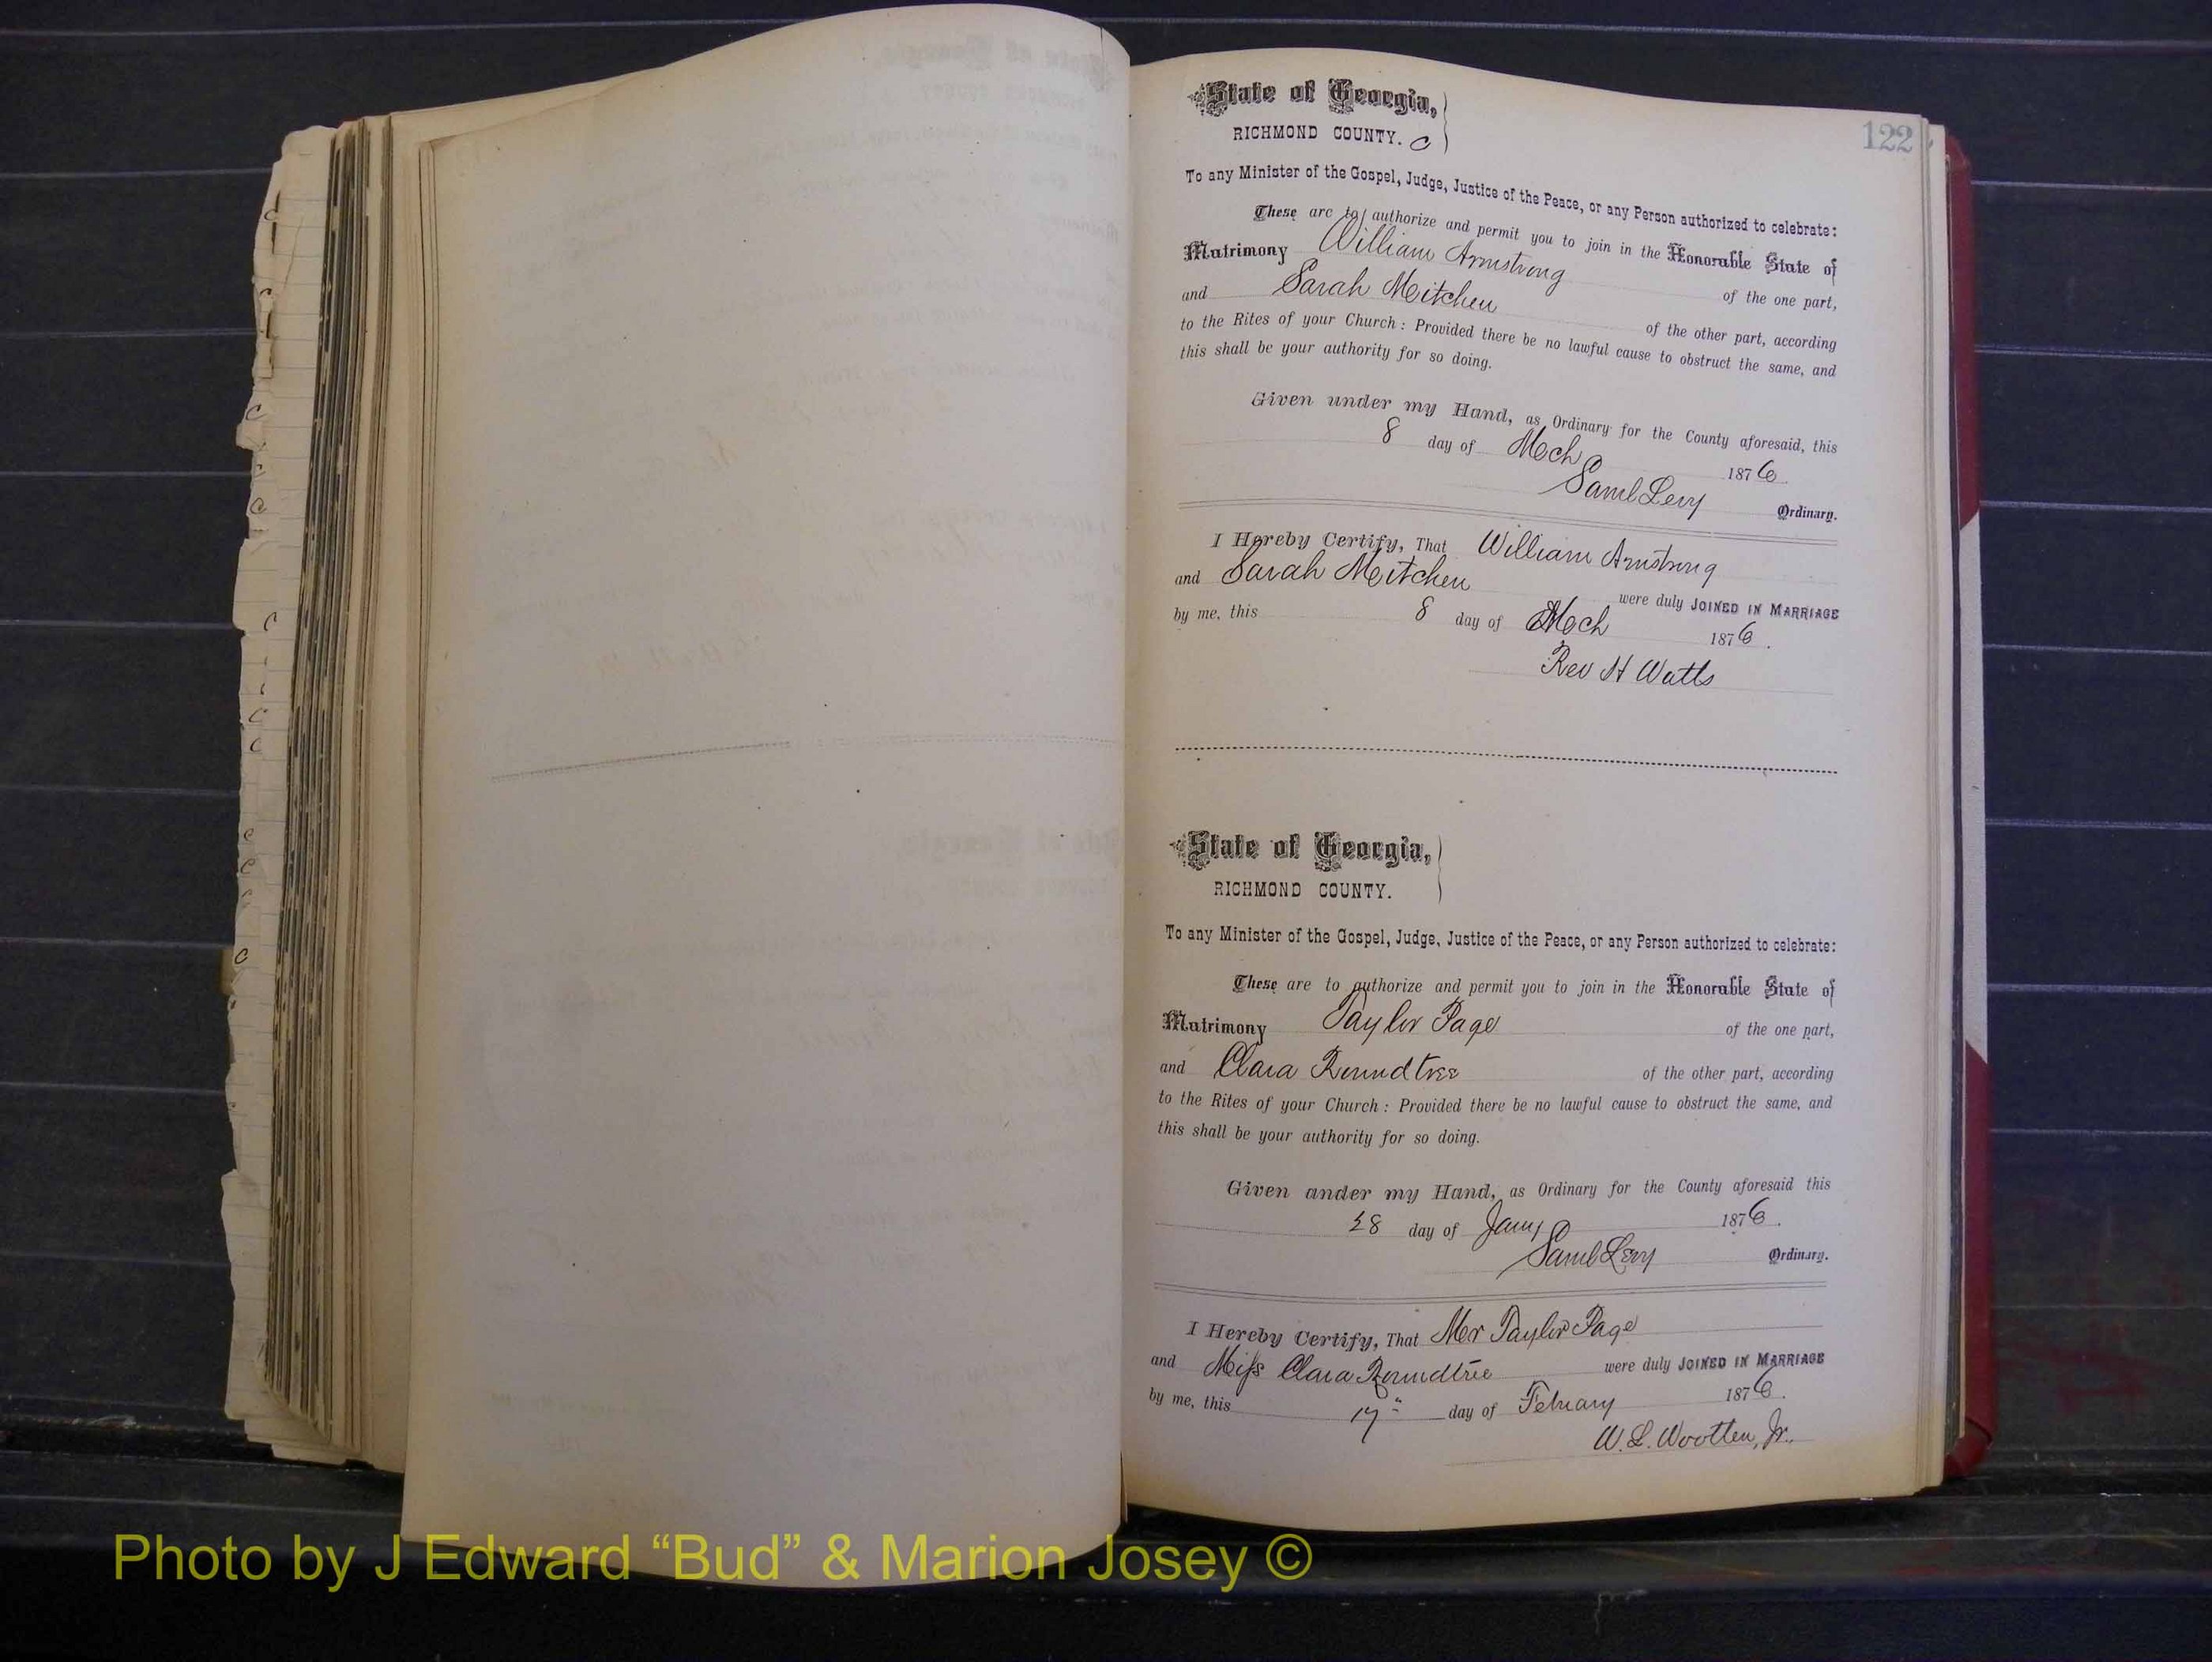 122
State of Georgia,
RICHMOND COUNTY. C
To any Minister of the Gospel, Judge, Justice of the Peace, or any Person authorized to celebrate:
These are to authorize and permit you to join in the Honorable State of
Matrimony William Armstrong of the one part,
and Sarah Mitchen of the other part, according
to the Rites of your Church: Provided there be no lawful cause to obstruct the same, and
this shall be your authority for so doing.
Given under my Hand, as Ordinary for the County aforesaid, this
8 day of Mch 1876.
Saml Levy Ordinary.
I Hereby Certify, That William Armstrong
and Sarah Mitchen were duly JOINED IN MARRIAGE
by me, this 8 day of Mch 1876.
Rev H Watts
State of Georgia,
RICHMOND COUNTY.
To any Minister of the Gospel, Judge, Justice of the Peace, or any Person authorized to celebrate:
These are to authorize and permit you to join in the Honorable State of
Matrimony Taylor Page of the one part,
and Clara Roundtree of the other part, according
to the Rites of your Church: Provided there be no lawful cause to obstruct the same, and
this shall be your authority for so doing.
Given under my Hand, as Ordinary for the County aforesaid this
28 day of Jany 1876.
Saml Levy Ordinary.
I Hereby Certify, That Mr Taylor Page
and Miss Clara Roundtree were duly JOINED IN MARRIAGE
by me, this 17" day of Februany 1876.
W. L. Wootten, Jr.
Photo by J Edward “Bud” & Marion Josey ©